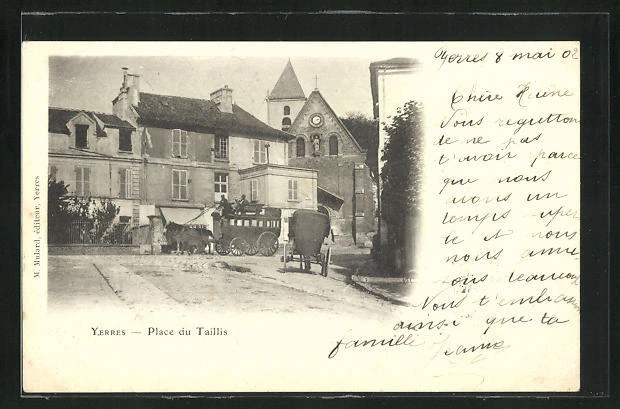 Yerres 8 mai 02
Chère Reine
Nous regrettons
de ne pas
t'avoir parce
que nous
avons un
temps super
be et nous
nous amu
sons beaucoup
Nous t'embrass
ainsi que ta
famille Jeanne
M. Mulard, éditeur, Yerres
YERRES — Place du Taillis